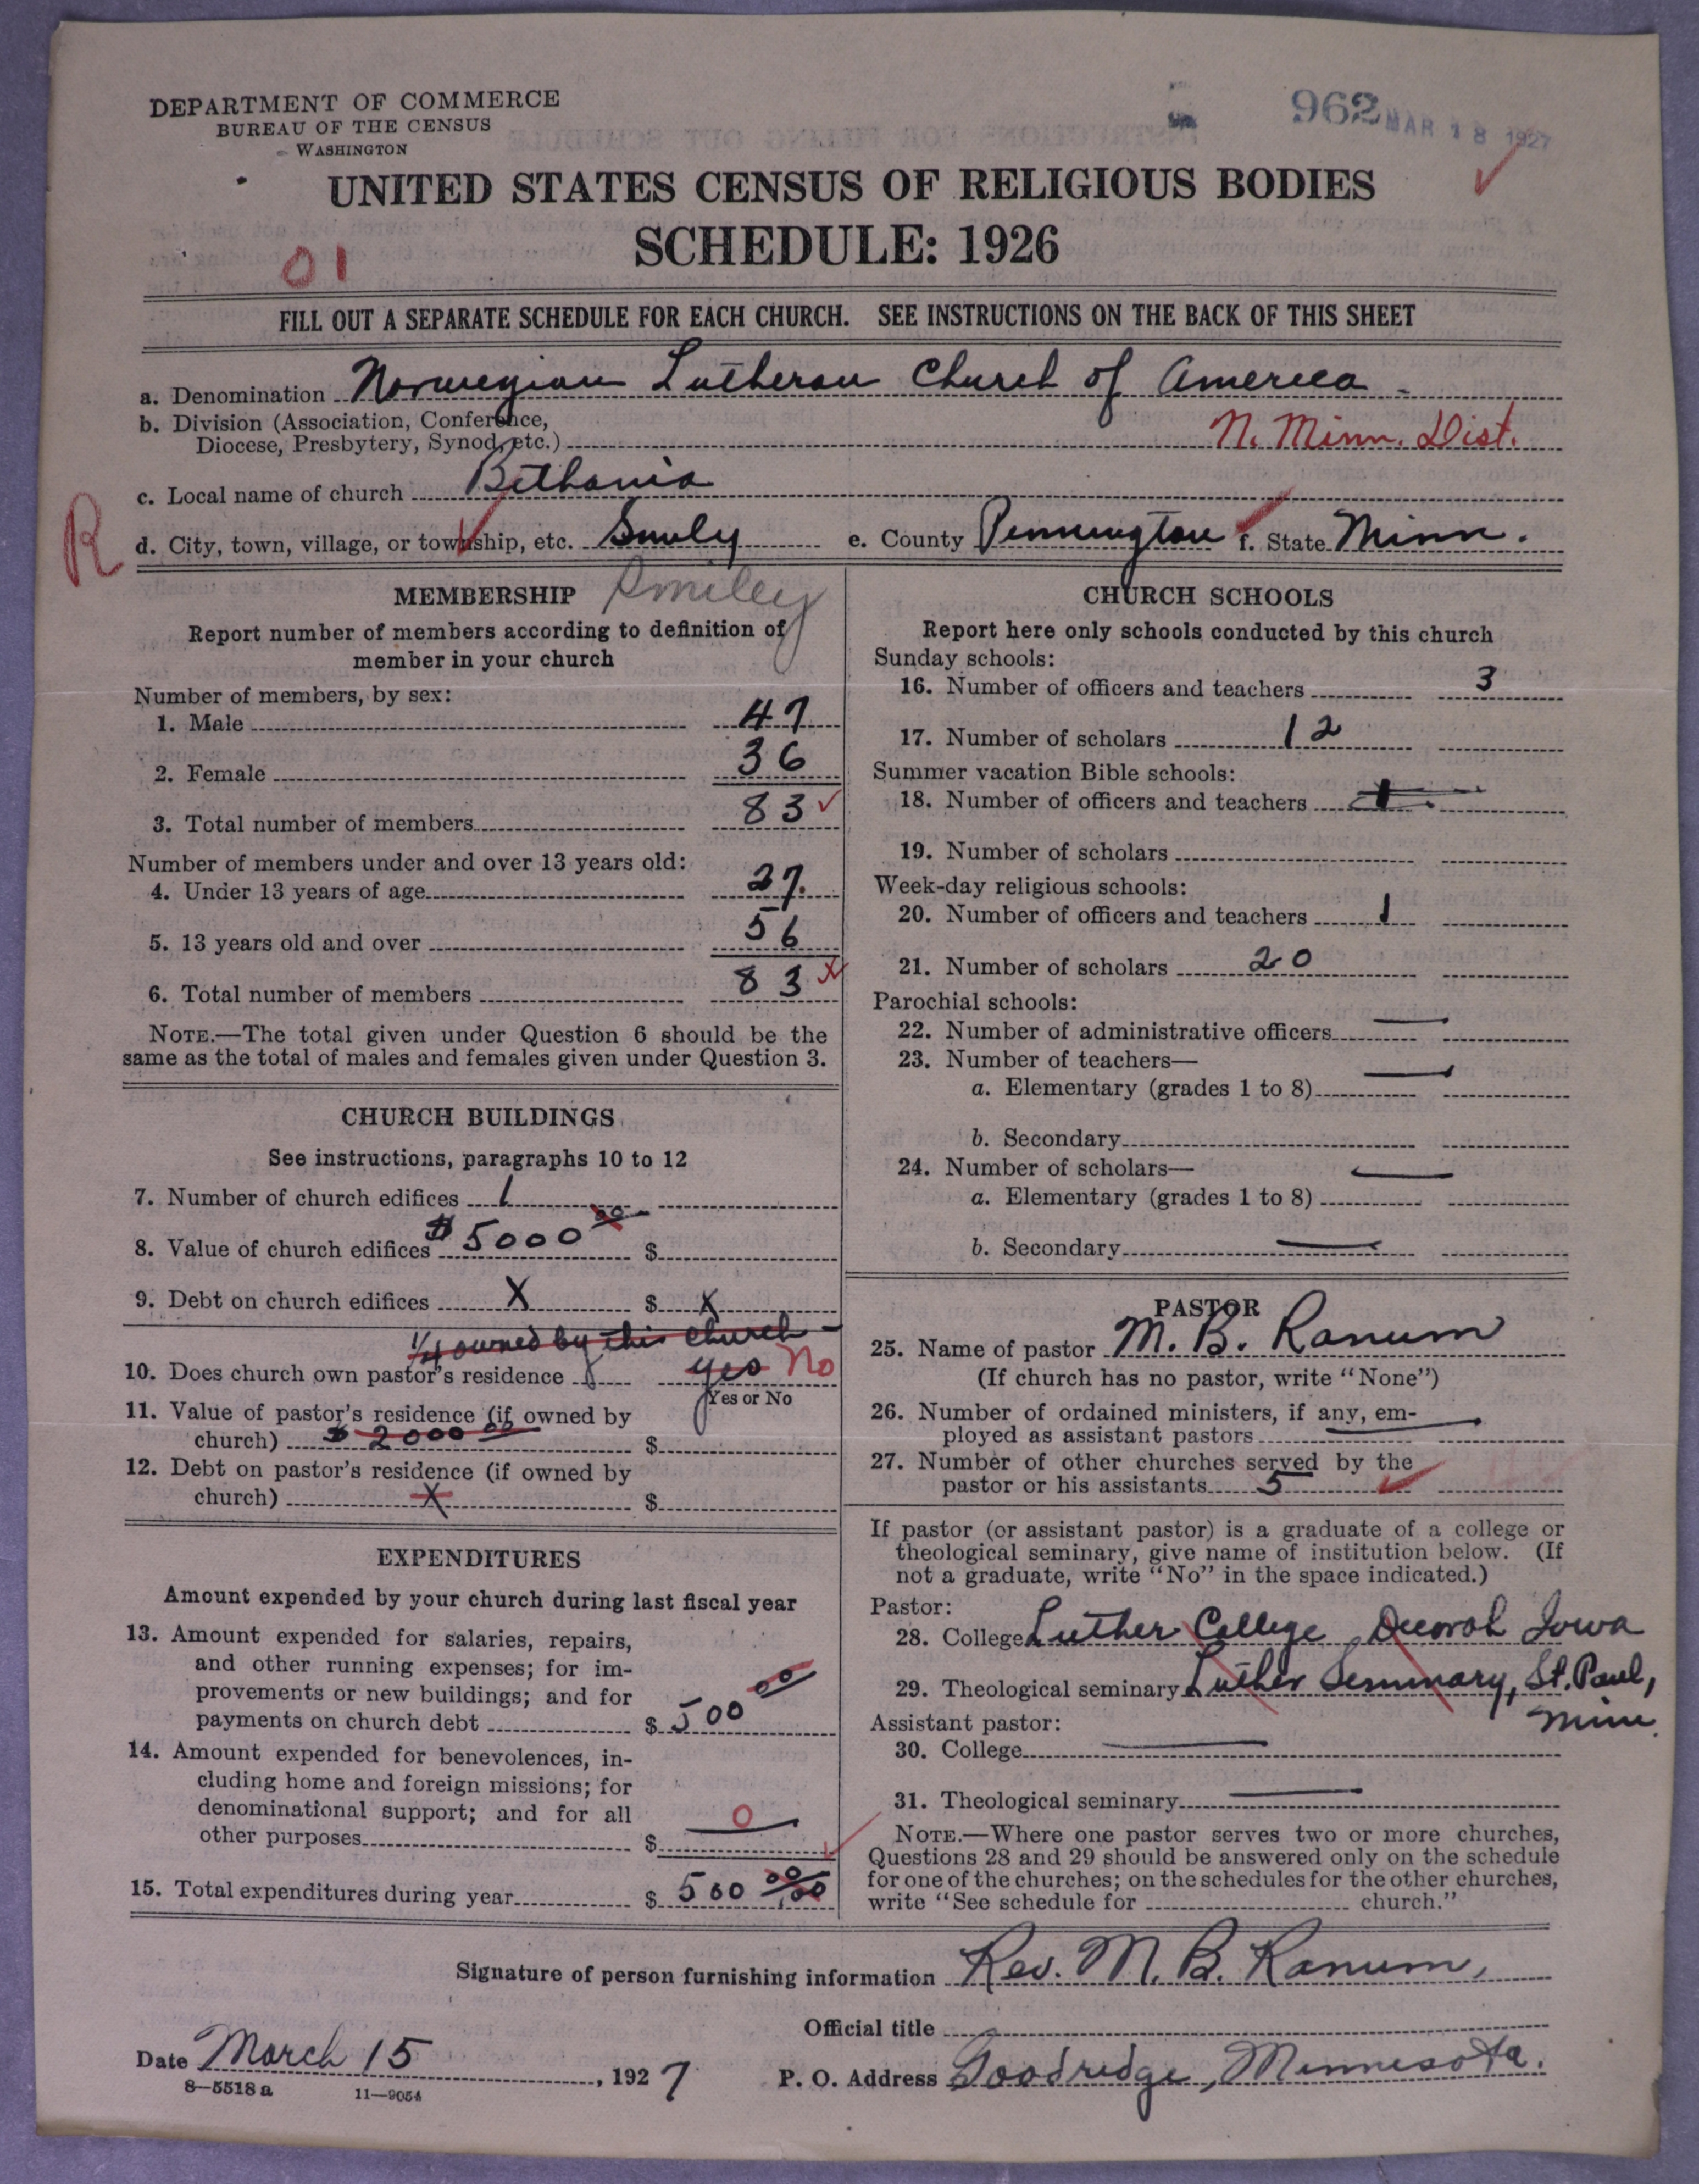 DEPARTMENT OF COMMERCE
BUREAU OF THE CENSUS
WASHINGTON
962 MAR 18 1927
UNITED STATES CENSUS OF RELIGIOUS BODIES
SCHEDULE: 1926
01
FILL OUT A SEPARATE SCHEDULE FOR EACH CHURCH. SEE INSTRUCTIONS ON THE BACK OF THIS SHEET
a. Denomination Norwegian Lutheran Church of America
b. Division (Association, Conference,
Diocese, Presbytery, Synod, etc.) N. Minn. Dist.
c. Local name of church Bethania
R
d. City, town, village, or township, etc. Smily e. County Pennington f. State Minn.
MEMBERSHIP Smiley
Report number of members according to definition of
member in your church
Number of members, by sex:
1. Male 47
2. Female 36
3. Total number of members 83
Number of members under and over 13 years old:
4. Under 13 years of age 27.
5. 13 years old and over 56
6. Total number of members 83
NOTE.—The total given under Question 6 should be the
same as the total of males and females given under Question 3.
CHURCH BUILDINGS
See instructions, paragraphs 10 to 12
7. Number of church edifices 1
8. Value of church edifices $5000 00 $
9. Debt on church edifices X $ X
1/4 owned by this church
10. Does church own pastor's residence yes No
Yes or No
11. Value of pastor's residence (if owned by
church) $ 2000 00 $
12. Debt on pastor's residence (if owned by
church) X $
EXPENDITURES
Amount expended by your church during last fiscal year
13. Amount expended for salaries, repairs,
and other running expenses; for im-
provements or new buildings; and for
payments on church debt $ 500 00
14. Amount expended for benevolences, in-
cluding home and foreign missions; for
denominational support; and for all
other purposes $ 0
15. Total expenditures during year $ 500 00/00
CHURCH SCHOOLS
Report here only schools conducted by this church
Sunday schools:
16. Number of officers and teachers 3
17. Number of scholars 12
Summer vacation Bible schools:
18. Number of officers and teachers
19. Number of scholars
Week-day religious schools:
20. Number of officers and teachers 1
21. Number of scholars 20
Parochial schools:
22. Number of administrative officers —
23. Number of teachers—
a. Elementary (grades 1 to 8) —
b. Secondary
24. Number of scholars—
a. Elementary (grades 1 to 8) —
b. Secondary —
PASTOR
25. Name of pastor M. B. Ranum
(If church has no pastor, write "None")
26. Number of ordained ministers, if any, em-
ployed as assistant pastors —
27. Number of other churches served by the
pastor or his assistants 5
If pastor (or assistant pastor) is a graduate of a college or
theological seminary, give name of institution below. (If
not a graduate, write "No" in the space indicated.)
Pastor:
28. College Luther College Decorah Iowa
29. Theological seminary Luther Seminary, St. Paul,
Minn
Assistant pastor:
30. College —
31. Theological seminary —
NOTE.—Where one pastor serves two or more churches,
Questions 28 and 29 should be answered only on the schedule
for one of the churches; on the schedules for the other churches,
write "See schedule for church."
Signature of person furnishing information Rev. M. B. Ranum,
Official title
Date March 15, 1927 P. O. Address Goodridge, Minnesota.
8—5518 a 11—9054